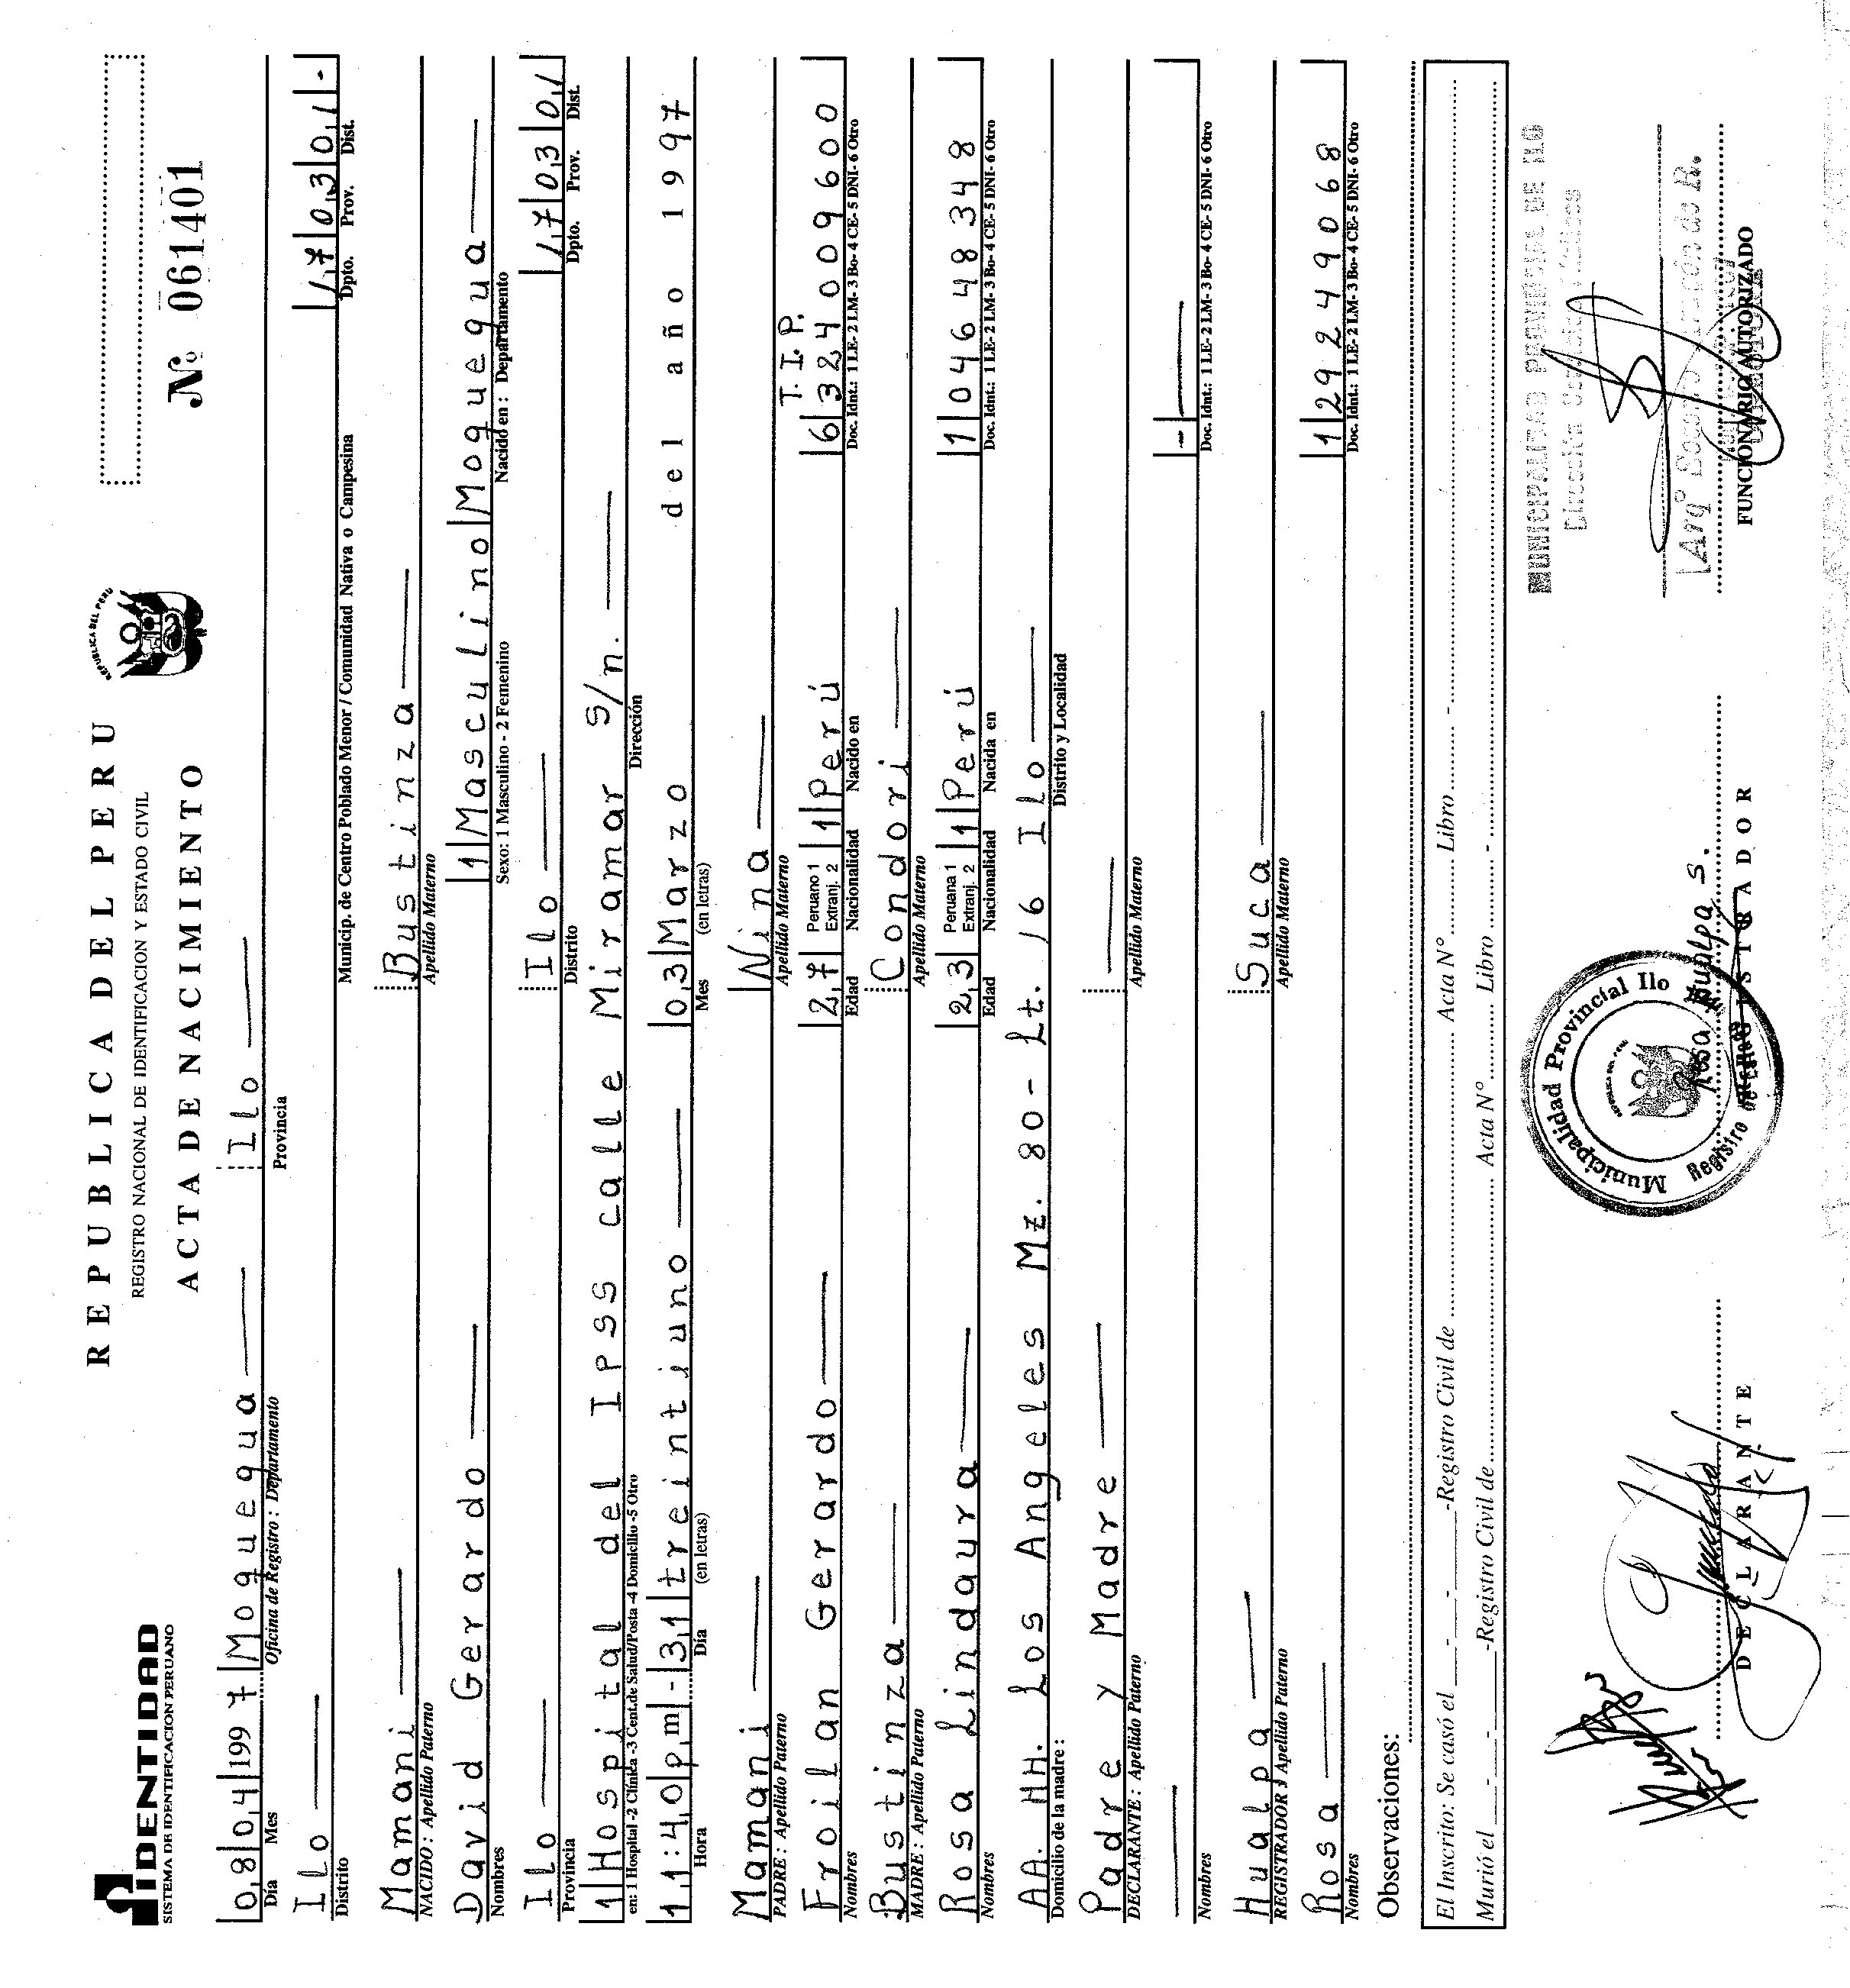 IDENTIDAD
SISTEMA DE IDENTIFICACION PERUANO
REPUBLICA DEL PERU
REGISTRO NACIONAL DE IDENTIFICACION Y ESTADO CIVIL
ACTA DE NACIMIENTO
REPUBLICA DEL PERU
Nº 061401
08 04 1997 Moquegua Ilo
Día Mes Oficina de Registro : Departamento Provincia
Ilo 17 03 01 -
Distrito Municip. de Centro Poblado Menor / Comunidad Nativa o Campesina Dpto. Prov. Dist.
Mamani Bustinza
NACIDO : Apellido Paterno Apellido Materno
David Gerardo 1 Masculino Moquegua
Nombres Sexo: 1 Masculino - 2 Femenino Nacido en : Departamento
Ilo Ilo 17 03 01
Provincia Distrito Dpto. Prov. Dist.
1 Hospital del Ipss calle Miramar s/n.
en: 1 Hospital -2 Clínica -3 Cent.de Salud/Posta -4 Domicilio -5 Otro Dirección
11:40 pm - 31 treintiuno 03 Marzo del año 1997
Hora Día (en letras) Mes (en letras)
Mamani Nina T. I. P.
PADRE : Apellido Paterno Apellido Materno
Froilan Gerardo 27 Peruano 1 Extranj. 2 1 Perú 6 324009600
Nombres Edad Nacionalidad Nacido en Doc. Idnt.: 1 LE- 2 LM- 3 Bo- 4 CE- 5 DNI- 6 Otro
Bustinza Condori
MADRE : Apellido Paterno Apellido Materno
Rosa Lindaura 23 Peruana 1 Extranj. 2 1 Perú 1 04648348
Nombres Edad Nacionalidad Nacida en Doc. Idnt.: 1 LE- 2 LM- 3 Bo- 4 CE- 5 DNI- 6 Otro
AA. HH. Los Angeles Mz. 80- Lt. 16 Ilo
Domicilio de la madre : Distrito y Localidad
Padre y Madre
DECLARANTE : Apellido Paterno Apellido Materno
-
Nombres Doc. Idnt.: 1 LE- 2 LM- 3 Bo- 4 CE- 5 DNI- 6 Otro
Hualpa Suca
REGISTRADOR : Apellido Paterno Apellido Materno
Rosa 1 29249068
Nombres Doc. Idnt.: 1 LE- 2 LM- 3 Bo- 4 CE- 5 DNI- 6 Otro
Observaciones:
El Inscrito: Se casó el - - -Registro Civil de Acta Nº Libro -
Murió el - - -Registro Civil de Acta Nº Libro -
MUNICIPALIDAD PROVINCIAL DE ILO
Municipalidad Provincial Ilo
Rosa Hualpa S.
DECLARANTE
REGISTRADOR
FUNCIONARIO AUTORIZADO